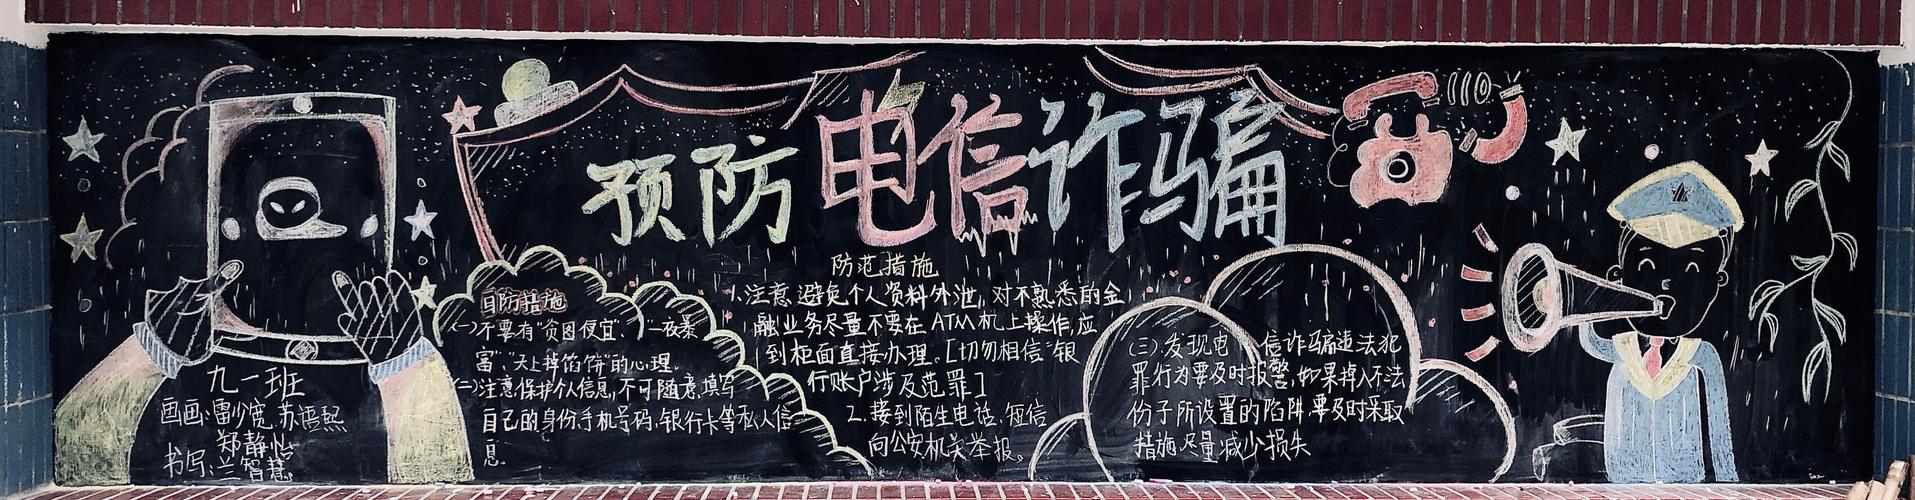 预防电信诈骗
九一班
画画:雷少宽.苏语熙
郑静怡
书写:兰智慧
目防措施
(一)不要有"贪图便宜"、"一夜暴
富"、"天上掉馅饼"的心理。
(二)注意保护个人信息,不可随意填写
自己的身份.手机号码.银行卡等私人信
息.
防范措施
1.注意避免个人资料外泄,对不熟悉的金
融业务尽量不要在ATM机上操作,应
到柜面直接办理。[切勿相信"银
行账户涉及范罪]
2.接到陌生电话、短信
向公安机关举报。
(三).发现电信诈骗违法犯
罪行为要及时报警,如果掉入不法
份子所设置的陷阱.要及时采取
措施尽量减少损失